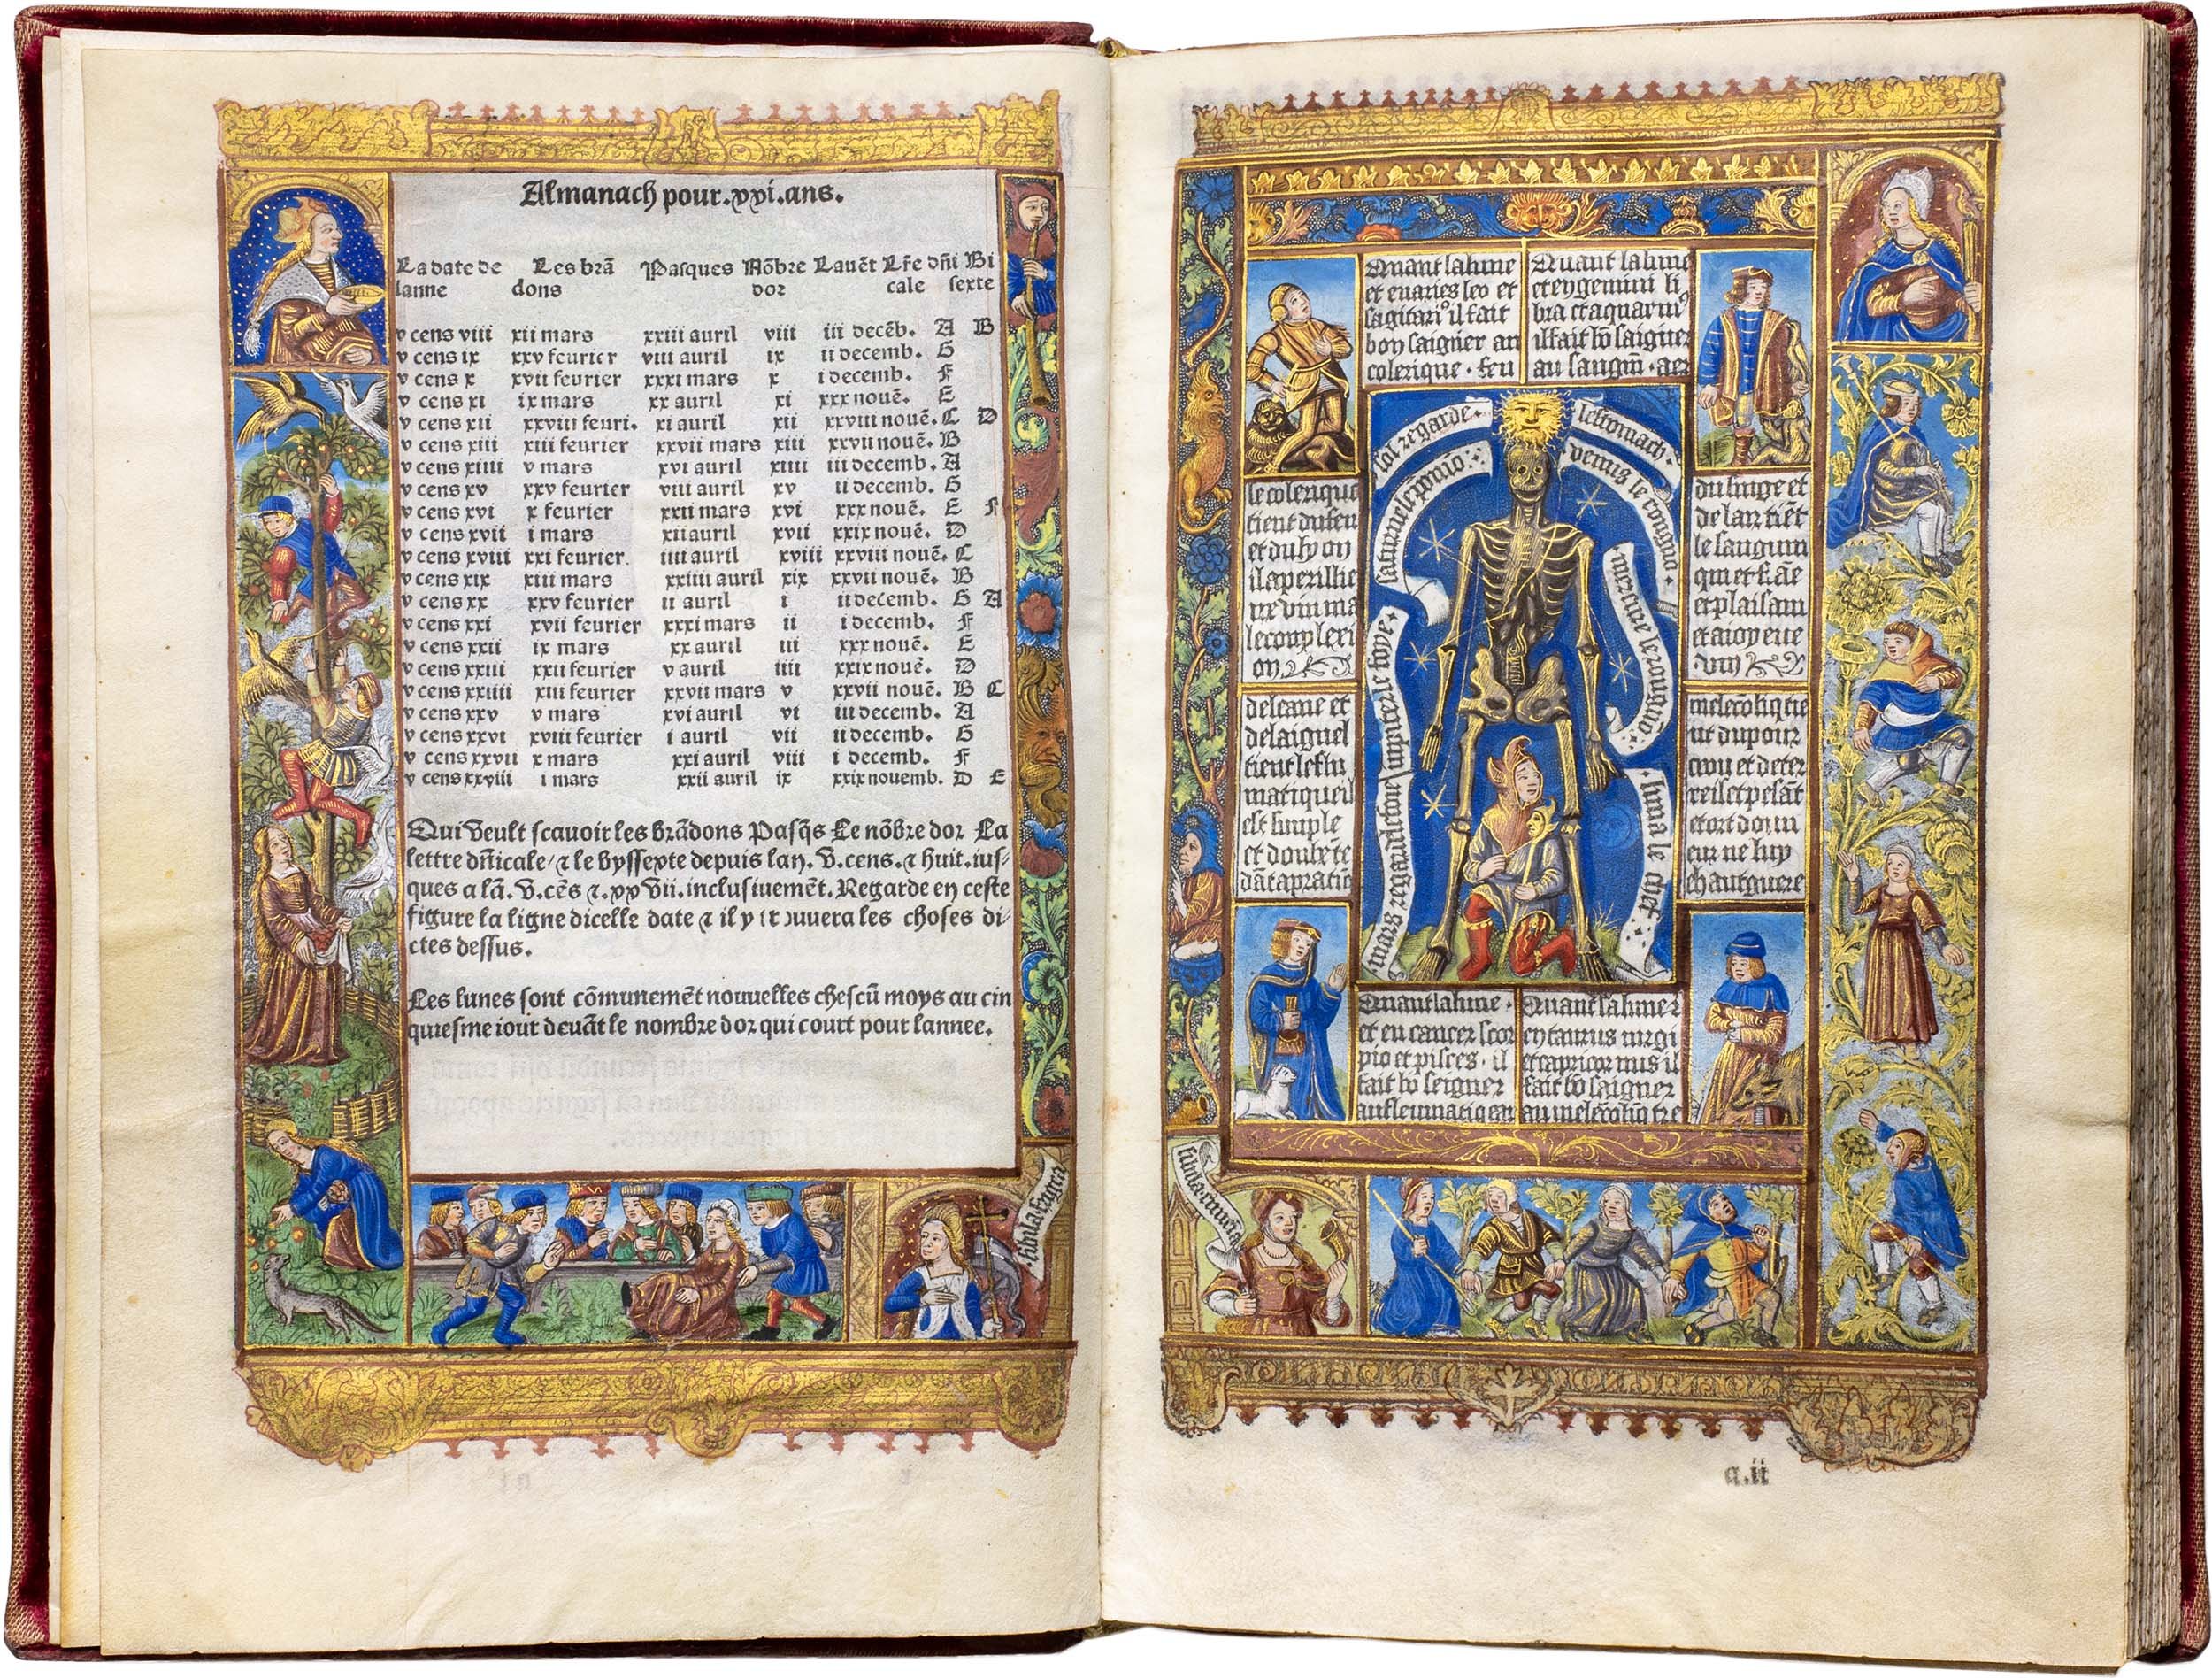 Almanach pour .xxi. ans.
La date de Les brã Pasques Nõbre Lauẽt Lr̃e dñi Bi
lanne dons dor cale sexte
v cens viii xii mars xxiii auril viii iii decẽb. A B
v cens ix xxv feurier viii auril ix ii decemb. G
v cens x xvii feurier xxxi mars x i decemb. F
v cens xi ix mars xx auril xi xxx nouẽ. E
v cens xii xxviii feuri. xi auril xii xxviii nouẽ. C D
v cens xiii xiii feurier xxvii mars xiii xxvii nouẽ. B
v cens xiiii v mars xvi auril xiiii iii decemb. A
v cens xv xxv feurier viii auril xv ii decemb. G
v cens xvi x feurier xxii mars xvi xxx nouẽ. E F
v cens xvii i mars xii auril xvii xxix nouẽ. D
v cens xviii xxi feurier. iiii auril xviii xxviii nouẽ. C
v cens xix xiii mars xxiiii auril xix xxvii nouẽ. B
v cens xx xxv feurier ii auril i ii decemb. G A
v cens xxi xvii feurier xxxi mars ii i decemb. F
v cens xxii ix mars xx auril iii xxx nouẽ. E
v cens xxiii xxii feurier v auril iiii xxix nouẽ. D
v cens xxiiii xiii feurier xxvii mars v xxvii nouẽ. B C
v cens xxv v mars xvi auril vi iii decemb. A
v cens xxvi xviii feurier i auril vii ii decemb. G
v cens xxvii x mars xxi auril viii i decemb. F
v cens xxviii i mars xxii auril ix xxix nouemb. D E
Qui veult scauoir les brãdons Pasq̃s Le nõbre dor La
lettre dñicale / & le byssexte depuis lan. v. cens. & huit. ius-
ques a lã. v. cẽs &. xx vii. inclusiuemẽt. Regarde en ceste
figure la ligne dicelle date & il y trouuera les choses di-
ctes dessus.
Les lunes sont cõmunemẽt nouuelles chescũ moys au cin
quiesme iour deuãt le nombre dor qui court pour lannee.
sibila fragra
Quant la lune
et en aries leo et
sagitari⁹ il fait
bon saigner au
colerique . feu
Quant la lune
et en gemini li
bra et aquari⁹
il fait bõ saigner
au sanguin . aer
sol regarde
lestomach.
saturne le pomõ
venus le rongno.
mercure le rongno
iupiter le foye
mars regarde le foie
luna le chief
le colerique
tient du feu
et du lyon
il a perillie
ux vin ma
le complexi
on
du singe et
de lair tiẽt
le sanguin
qui et frãc
et plaisant
et a ioyeue
vin
de leaue et
de laignel
tient le fleu
matique il
est simple
et doub̃te
dãt a pratiq̃
melecoliq̃ tie
nt du pour
ceau et de ter
re il et pesãt
et ort don
cur ne luy
chaut guere
Quant la lune
et en cancer scor
pio et pisces . il
fait bõ seigner
au fleumatique au
Quant la lune
en taurus virgi
et capricornus il
fait bõ saigner
au melẽcoliq̃ tre
sibila
a.ii